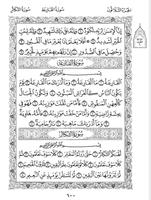 الجزء الثلاثون سورة القارعة سورة التكاثر
إِنَّ الْإِنسَانَ لِرَبِّهِ لَكَنُودٌ ٦ وَإِنَّهُ عَلَىٰ ذَٰلِكَ لَشَهِيدٌ ٧ وَإِنَّهُ
لِحُبِّ الْخَيْرِ لَشَدِيدٌ ٨ ۞ أَفَلَا يَعْلَمُ إِذَا بُعْثِرَ مَا فِي الْقُبُورِ ٩
وَحُصِّلَ مَا فِي الصُّدُورِ ١٠ إِنَّ رَبَّهُم بِهِمْ يَوْمَئِذٍ لَّخَبِيرٌ ١١
سُورَةُ الْقَارِعَةِ
بِسْمِ اللَّهِ الرَّحْمَٰنِ الرَّحِيمِ
الْقَارِعَةُ ١ مَا الْقَارِعَةُ ٢ وَمَا أَدْرَاكَ مَا الْقَارِعَةُ ٣
يَوْمَ يَكُونُ النَّاسُ كَالْفَرَاشِ الْمَبْثُوثِ ٤ وَتَكُونُ الْجِبَالُ
كَالْعِهْنِ الْمَنفُوشِ ٥ فَأَمَّا مَن ثَقُلَتْ مَوَازِينُهُ ٦ فَهُوَ
فِي عِيشَةٍ رَّاضِيَةٍ ٧ وَأَمَّا مَنْ خَفَّتْ مَوَازِينُهُ ٨
فَأُمُّهُ هَاوِيَةٌ ٩ وَمَا أَدْرَاكَ مَا هِيَهْ ١٠ نَارٌ حَامِيَةٌ ١١
سُورَةُ التَّكَاثُرِ
بِسْمِ اللَّهِ الرَّحْمَٰنِ الرَّحِيمِ
أَلْهَاكُمُ التَّكَاثُرُ ١ حَتَّىٰ زُرْتُمُ الْمَقَابِرَ ٢ كَلَّا سَوْفَ تَعْلَمُونَ ٣
ثُمَّ كَلَّا سَوْفَ تَعْلَمُونَ ٤ كَلَّا لَوْ تَعْلَمُونَ عِلْمَ الْيَقِينِ ٥
لَتَرَوُنَّ الْجَحِيمَ ٦ ثُمَّ لَتَرَوُنَّهَا عَيْنَ الْيَقِينِ ٧
ثُمَّ لَتُسْأَلُنَّ يَوْمَئِذٍ عَنِ النَّعِيمِ ٨
٦٠٠